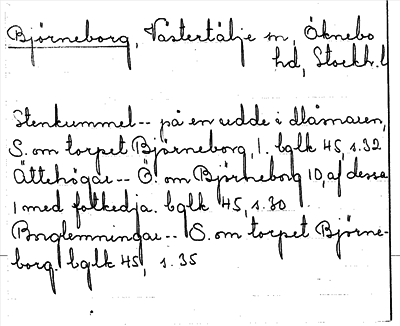 Björneborg, Västertälje sn, Öknebo
hd, Stockh. l
Stenkummel -- på en udde i Måsnaren,
S. om torpet Björneborg, 1. bglk 45, s. 32
Ättehögar -- Ö. om Björneborg 10, af dessa
1 med fotkedja. bglk 45, s. 30
Borglemningar -- S. om torpet Björne-
borg. bglk 45, s. 35